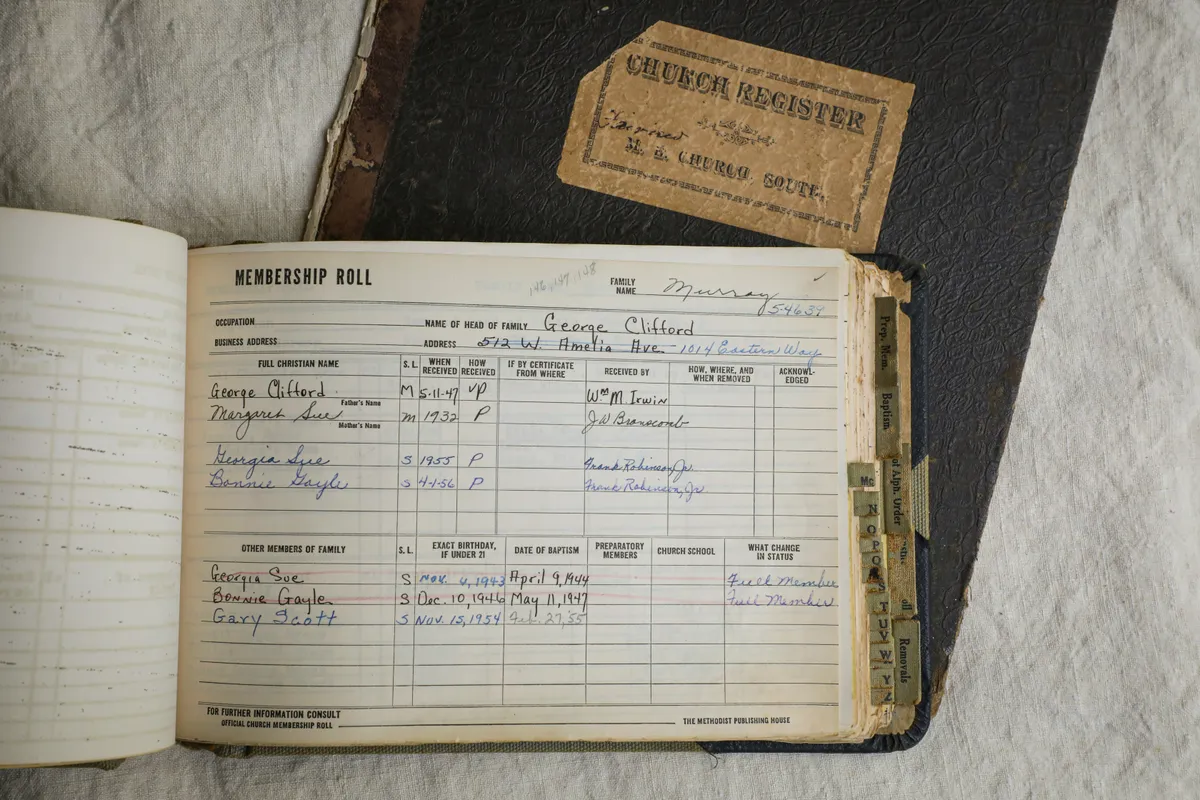 CHURCH REGISTER
Fairview
M. E. CHURCH, SOUTH.
MEMBERSHIP ROLL
146, 147, 148
FAMILY NAME Murray
5-4639
OCCUPATION NAME OF HEAD OF FAMILY George Clifford
BUSINESS ADDRESS ADDRESS 512 W. Amelia Ave. 1014 Eastern Way
FULL CHRISTIAN NAME S. L. WHEN RECEIVED HOW RECEIVED IF BY CERTIFICATE FROM WHERE RECEIVED BY HOW, WHERE, AND WHEN REMOVED ACKNOWL-EDGED
George Clifford M 5-11-47 VP Wm M. Irwin
Father's Name
Margaret Sue m 1932 P J W Branscomb
Mother's Name
Georgia Sue S 1955 P Frank Robinson, Jr.
Bonnie Gayle S 4-1-56 P Frank Robinson, Jr
OTHER MEMBERS OF FAMILY S. L. EXACT BIRTHDAY, IF UNDER 21 DATE OF BAPTISM PREPARATORY MEMBERS CHURCH SCHOOL WHAT CHANGE IN STATUS
Georgia Sue S Nov. 6, 1943 April 9, 1944 Full Member
Bonnie Gayle S Dec. 10, 1946 May 11, 1947 Full Member
Gary Scott S Nov. 15, 1954 Feb. 27, 55
FOR FURTHER INFORMATION CONSULT
OFFICIAL CHURCH MEMBERSHIP ROLL THE METHODIST PUBLISHING HOUSE
Prep. Mem.
Baptism
of Alph. Order
Mc
N
O
P
S
T
U V
W
Y
Z
Removals